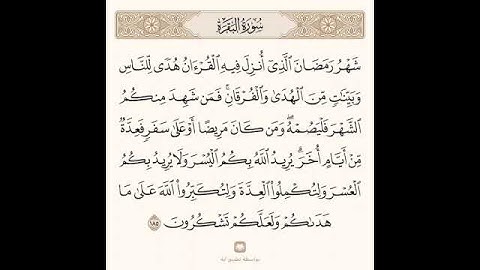 سُورَةُ البَقَرَةِ
شَهْرُ رَمَضَانَ ٱلَّذِىٓ أُنزِلَ فِيهِ ٱلْقُرْءَانُ هُدًى لِّلنَّاسِ
وَبَيِّنَٰتٍ مِّنَ ٱلْهُدَىٰ وَٱلْفُرْقَانِ ۚ فَمَن شَهِدَ مِنكُمُ
ٱلشَّهْرَ فَلْيَصُمْهُ ۖ وَمَن كَانَ مَرِيضًا أَوْ عَلَىٰ سَفَرٍ فَعِدَّةٌ
مِّنْ أَيَّامٍ أُخَرَ ۗ يُرِيدُ ٱللَّهُ بِكُمُ ٱلْيُسْرَ وَلَا يُرِيدُ بِكُمُ
ٱلْعُسْرَ وَلِتُكْمِلُوا۟ ٱلْعِدَّةَ وَلِتُكَبِّرُوا۟ ٱللَّهَ عَلَىٰ مَا
هَدَىٰكُمْ وَلَعَلَّكُمْ تَشْكُرُونَ ١٨٥
بواسطة تطبيق آية